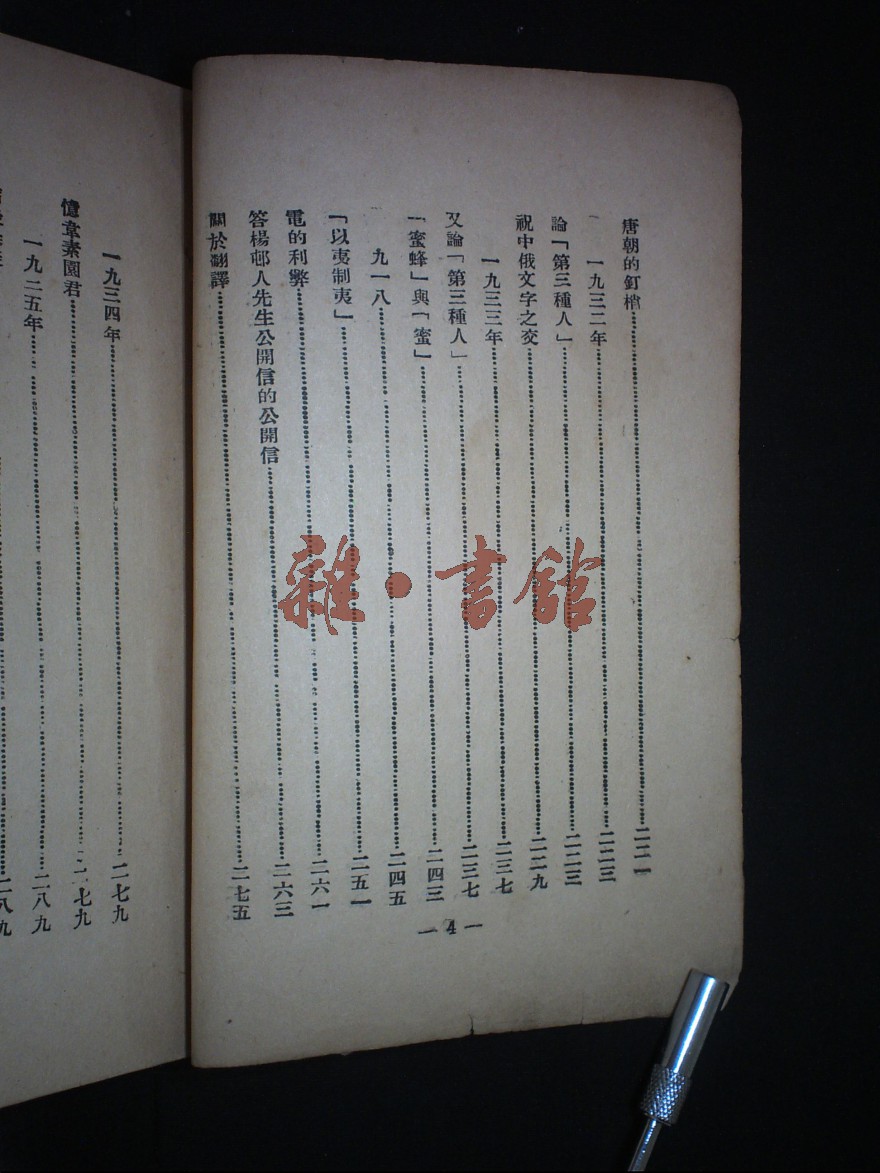 唐朝的釘梢……二二一
一九三二年……二二三
論「第三種人」……二二三
祝中俄文字之交……二二九
一九三三年……二三七
又論「第三種人」……二三七
「蜜蜂」與「蜜」……二四三
九一八……二四五
「以夷制夷」……二五一
電的利弊……二六一
答楊邨人先生公開信的公開信……二六三
關於翻譯……二七五
— 4 —
一九三四年……二七九
憶韋素園君……二七九
一九二五年……二八九
二八九
雜·書館